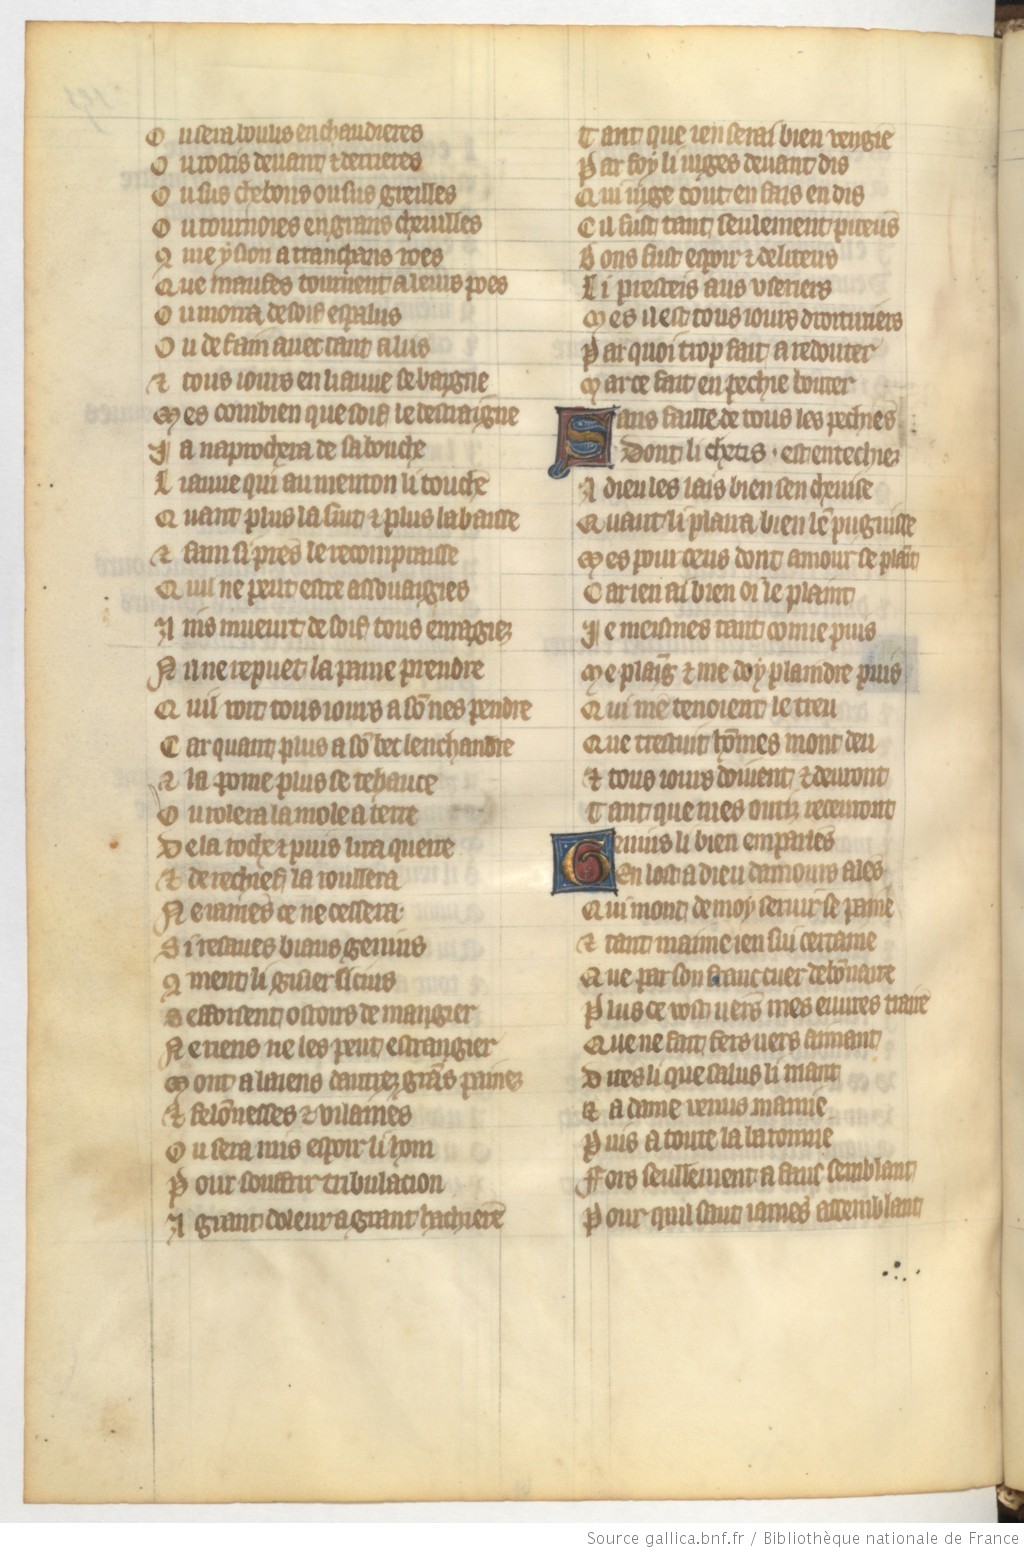 O u sera boulus en chaudieres
O u rostis deuant ⁊ derrieres
O u sus charbons ou sus greilles
O u tournoies en grans cheuilles
Q me ysion a tranchans roes
Q ue maufes tournent a leurs poes
O u morra de soif es palus
O u de fain auec tantalus
⁊ tous iours en liaue se baigne
M es combien que soif le destraigne
J a naprochera de sa bouche
L iaue qui au menton li touche
Q uant plus la suit ⁊ plus labaisse
⁊ fain si pres le recompraisse
Q uil ne peut estre assouaigies
A ins mueurt de soif tous enragiez
N il ne repuet la pome prendre
Q uil voit tous iours a sō nes pendre
C ar quant plus a sō bec lenchaudre
⁊ la pome plus se rehauce
O u rolera la mole a terre
D e la roche ⁊ puis lira querre
⁊ de rechief la roullera
N e iames ce ne cessera
S i tesaues biaus genius
Q ment li giusier ticius
S efforsent ostoirs de mangier
N e riens ne les peut estrangier
M ont a laiens dautrez grās painez
⁊ felōnesses ⁊ vilaines
O u sera mis espoir li hom
P our souffrir tribulacion
A grant doleur a grant hachiere
T ant que ien serai bien vengie
P ar foy li iuges deuant dis
Q ui iuge tout en fais en dis
C il fust tant seulement piteus
B ons fust espoir ⁊ deliteus
L i presteis aus vseriers
M es il est tous iours droituriers
P ar quoi trop fait a redouter
M arce fait en pechie bouter
S ans faille de tous les pechies
Dont li chetis est entechiez
A dieu les lais bien sen cheuisse
Quant li plaira bien lē puguisse
M es pour ceus dont amour se plaīt
C ar ien ai bien oi le plaint
J e meismes tant comie puis
M e plaīg ⁊ me doy plaindre puis
Q ui mē tenoient le treu
Q ue trestuit hōmes mont deu
⁊ tous iours doiuent ⁊ deuront
T ant que mes outiz receuront
G enius li bien emparles
En lost a dieu damours ales
Q ui mont de moy seruir se paine
⁊ tant maime ien sui certaine
Q ue par son franc cuer debōnaire
P lus ce voist uers mes euures traire
Q ue ne fait fers uers aimant
D ites li que salus li mant
⁊ a dame venus mamie
P uis a toute la baronnie
F ors seullement a faus semblant
P our quil saut iames assemblant
Source gallica.bnf.fr / Bibliothèque nationale de France